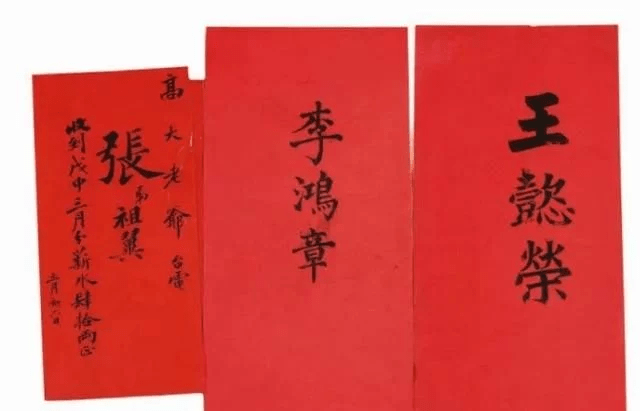 王懿榮
李鴻章
高大老爺台電
張弟祖翼
收到戊申三月分薪水肆拾兩正
月初日